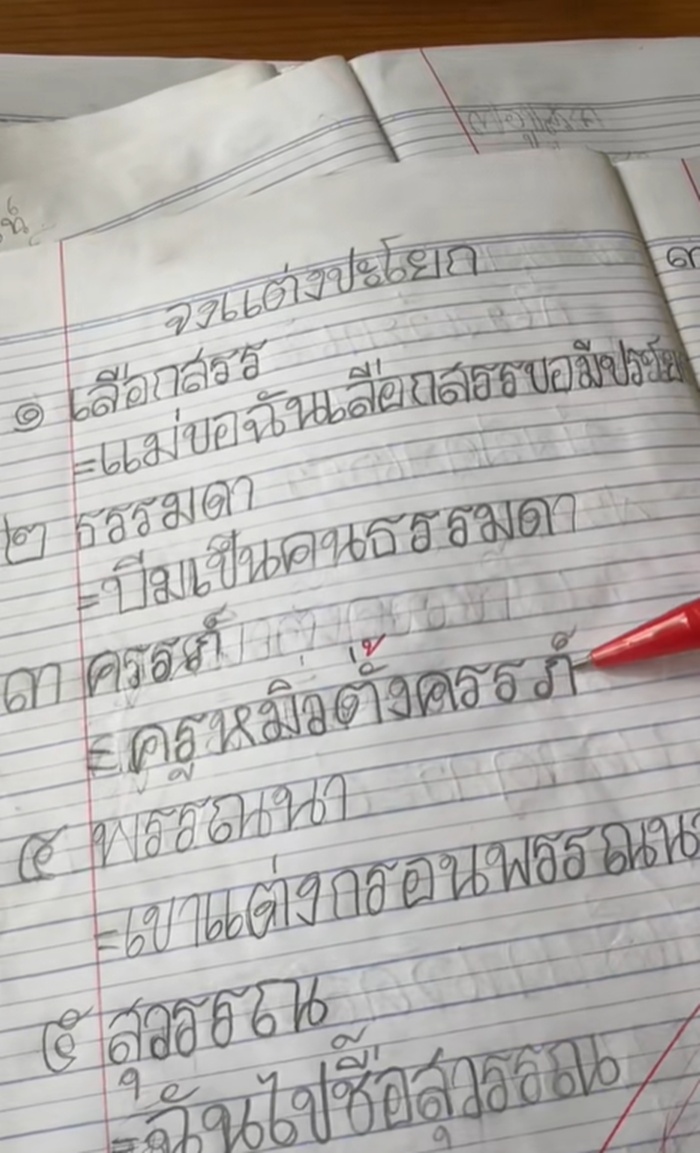 จงแต่งประโยก
๑ เลือกสรร
=แม่ขอฉันเลือกสรรขอมีประ
๒ ธรรมดา
=บีมเป็นคนธรรมดา
๓ ครรภ์
=ครูหมิวตั้งครรภ์
๔ พรรณนา
=เขาแต่งกรอนพรรณน
๕ สุวรรณ
=ฉันไปชื้อสุวรรณ